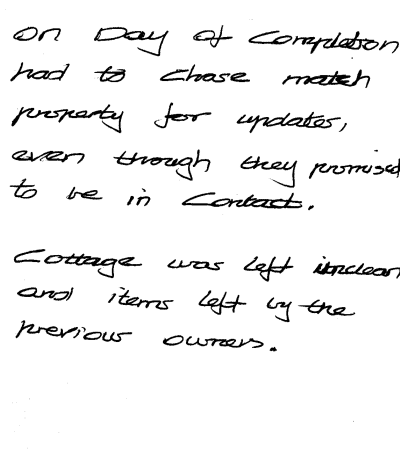 On Day of Completion
had to chase match
property for updates,
even though they promised
to be in Contact.
Cottage was left unclean
and items left by the
previous owners.